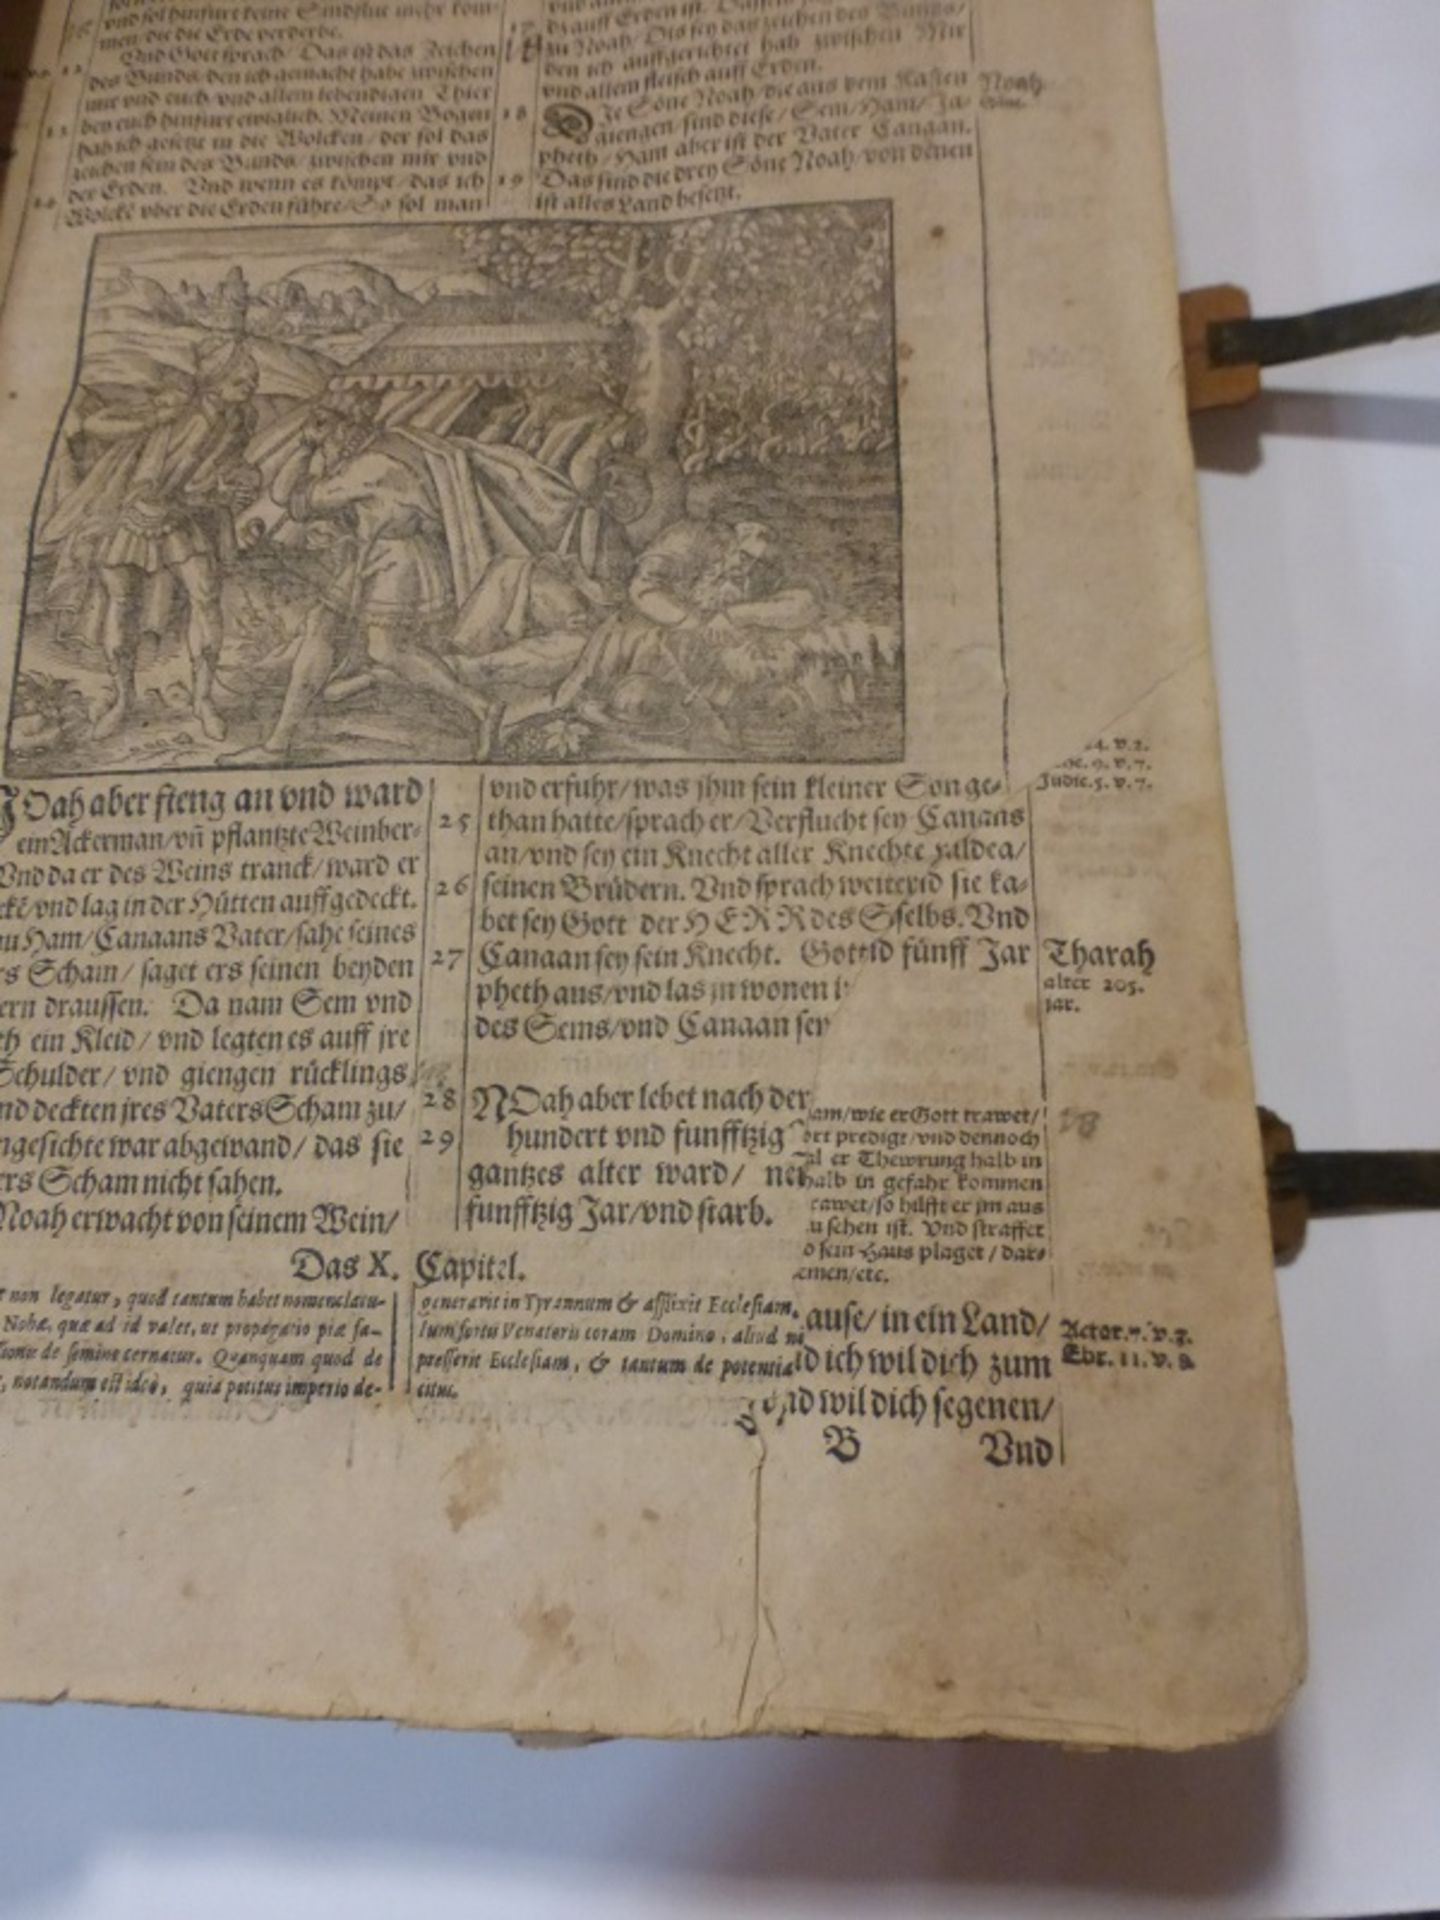 und sol hinfurt keine Sindflut mehr kom-
men/die die Erde verderbe.
Und Gott sprach/Das ist das Zeichen
12
des Bunds/den ich gemacht habe zwischen
mir vnd euch/vnd allem lebendigen Thier
bey euch hinfurt ewiglich. Meinen Bogen
13
hab ich gesetzt in die Wolcken/der sol das
zeichen sein des Bunds/zwischen mir vnd
der Erden. Vnd wenn es kömpt/das ich
14
Wolckē vber die Erden führe/So sol man
dz auff Erden ist.
17
zu Noah/Dis sey das zeichen des Bunds/
den ich auffgerichtet hab zwischen Mir
vnd allem fleisch auff Erden.
18
DJe Söne Noah/die aus dem Kasten
giengen/sind diese/Sem/Ham/Ja-
pheth/Ham aber ist der Vater Canaan.
19
Das sind die drey Söne Noah/von denen
ist alles Land besetzt.
Noah
Söne.
NOah aber fieng an vnd ward
ein Ackerman/vn̄ pflantzte Weinber-
Vnd da er des Weins tranck/ward er
ckē/vnd lag in der Hütten auffgedeckt.
nu Ham/Canaans Vater/sahe seines
rs Scham/saget ers seinen beyden
ern draussen. Da nam Sem vnd
th ein Kleid/vnd legten es auff jre
Schulder/vnd giengen rücklings
nd deckten jres Vaters Scham zu/
ngesichte war abgewand/das sie
rs Scham nicht sahen.
Noah erwacht von seinem Wein/
vnd erfuhr/was jhm sein kleiner Son ge-
25 than hatte/sprach er/Verflucht sey Canans
an/vnd sey ein Knecht aller Knechte xaldea/
26 seinen Brüdern. Vnd sprach weiterid sie ka-
bet sey Gott der HERR des Sselbs. Vnd
27 Canaan sey sein Knecht. Gottid fünff Jar
pheth aus/vnd las jn wonen i
des Sems/vnd Canaan sey
28 NOah aber lebet nach der
29 hundert vnd funfftzig
gantzes alter ward/ neu
funfftzig Jar/vnd starb.
4. v. 2.
9. v. 7.
Judic. 5. v. 7.
Tharah
alter 205.
jar.
am/wie er Gott trawet/
ort predigt/vnd dennoch
al er Thewrung halb in
halb in gefahr kommen
rawet/so hilfft er jm aus
u sehen ist. Vnd straffet
o sein Haus plaget/dar-
emen/etc.
Das X. Capitel.
t non legatur, quod tantum habet nomenclatu-
Nohæ, quæ ad id valet, ut propagatio piæ fa-
sione de semine cernatur. Quanquam quod de
, notandum est ideò, quia potitus imperio de-
generavit in Tyrannum & afflixit Ecclesiam.
lum fortis Venatoris coram Domino, aliud ni
presserit Ecclesiam, & tantum de potentia
citus.
ause/in ein Land/
id ich wil dich zum
nd wil dich segenen/
B Vnd
Actor. 7. v. 3.
Ebr. 11. v. 8.